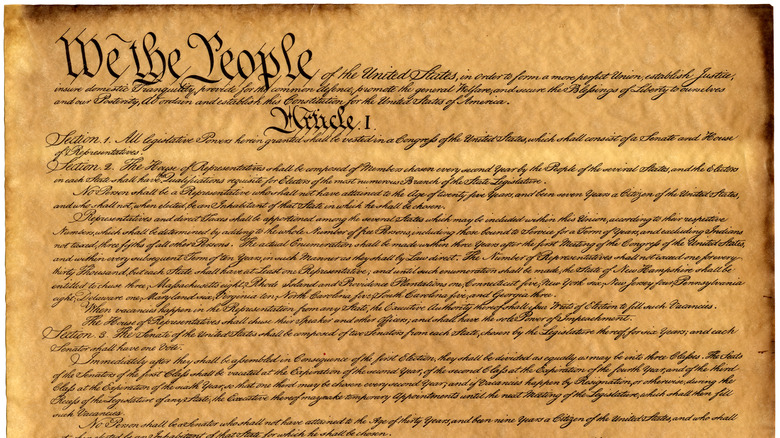 We the People of the United States, in order to form a more perfect Union, establish Justice,
insure domestic Tranquility, provide for the common defence, promote the general Welfare, and secure the Blessings of Liberty to ourselves
and our Posterity, do ordain and establish this Constitution for the United States of America.
Article. I.
Section. 1. All legislative Powers herein granted shall be vested in a Congress of the United States, which shall consist of a Senate and House
of Representatives.
Section. 2. The House of Representatives shall be composed of Members chosen every second Year by the People of the several States, and the Electors
in each State shall have the Qualifications requisite for Electors of the most numerous Branch of the State Legislature.
No Person shall be a Representative who shall not have attained to the Age of twenty five Years, and been seven Years a Citizen of the United States,
and who shall not, when elected, be an Inhabitant of that State in which he shall be chosen.
Representatives and direct Taxes shall be apportioned among the several States which may be included within this Union, according to their respective
Numbers, which shall be determined by adding to the whole Number of free Persons, including those bound to Service for a Term of Years, and excluding Indians
not taxed, three fifths of all other Persons. The actual Enumeration shall be made within three Years after the first Meeting of the Congress of the United States,
and within every subsequent Term of ten Years, in such Manner as they shall by Law direct. The Number of Representatives shall not exceed one for every
thirty Thousand, but each State shall have at Least one Representative; and until such enumeration shall be made, the State of New Hampshire shall be
entitled to chuse three, Massachusetts eight, Rhode Island and Providence Plantations one, Connecticut five, New York six, New Jersey four, Pennsylvania
eight, Delaware one, Maryland six, Virginia ten, North Carolina five, South Carolina five, and Georgia three.
When vacancies happen in the Representation from any State, the Executive Authority thereof shall issue Writs of Election to fill such Vacancies.
The House of Representatives shall chuse their Speaker and other Officers; and shall have the sole Power of Impeachment.
Section. 3. The Senate of the United States shall be composed of two Senators from each State, chosen by the Legislature thereof, for six Years; and each
Senator shall have one Vote.
Immediately after they shall be assembled in Consequence of the first Election, they shall be divided as equally as may be into three Classes. The Seats
of the Senators of the first Class shall be vacated at the Expiration of the second Year, of the second Class at the Expiration of the fourth Year, and of the third
Class at the Expiration of the sixth Year, so that one third may be chosen every second Year; and if Vacancies happen by Resignation, or otherwise, during the
Recess of the Legislature of any State, the Executive thereof may make temporary Appointments until the next Meeting of the Legislature, which shall then fill
such Vacancies.
No Person shall be a Senator who shall not have attained to the Age of thirty Years, and been nine Years a Citizen of the United States, and who shall
Inhabitant of that State for which he shall be chosen.